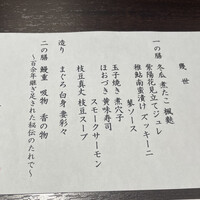 幾世
一の膳 冬瓜 煮たこ 楓麩
紫陽花見立てジュレ
椎鮎南蛮漬け ズッキーニ
琴ソース
玉子焼き 煮穴子
ほおづき 黄味寿司
スモークサーモン
枝豆真丈 枝豆スープ
造り まぐろ 白身 妻彩々
二の膳 鰻重 吸物 香の物
〜百余年継ぎ足された秘伝のたれで〜